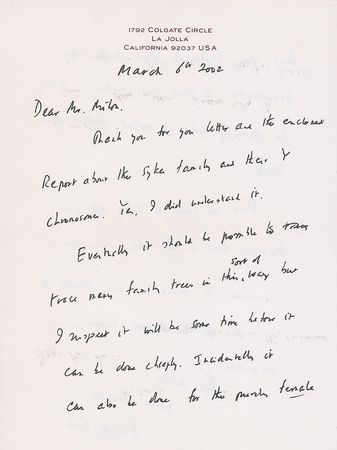 1792 COLGATE CIRCLE
LA JOLLA
CALIFORNIA 92037 USA
March 6th 2002
Dear Mr. Milton,
Thank you for you letter and the enclosed
Report about the Sykes family and their Y
chromosome. Yes, I did understand it.
Eventually it should be possible to
trace many family trees in this sort of way but
I suspect it will be some time before it
can be done cheaply. Incidentally it
can also be done for the purely female